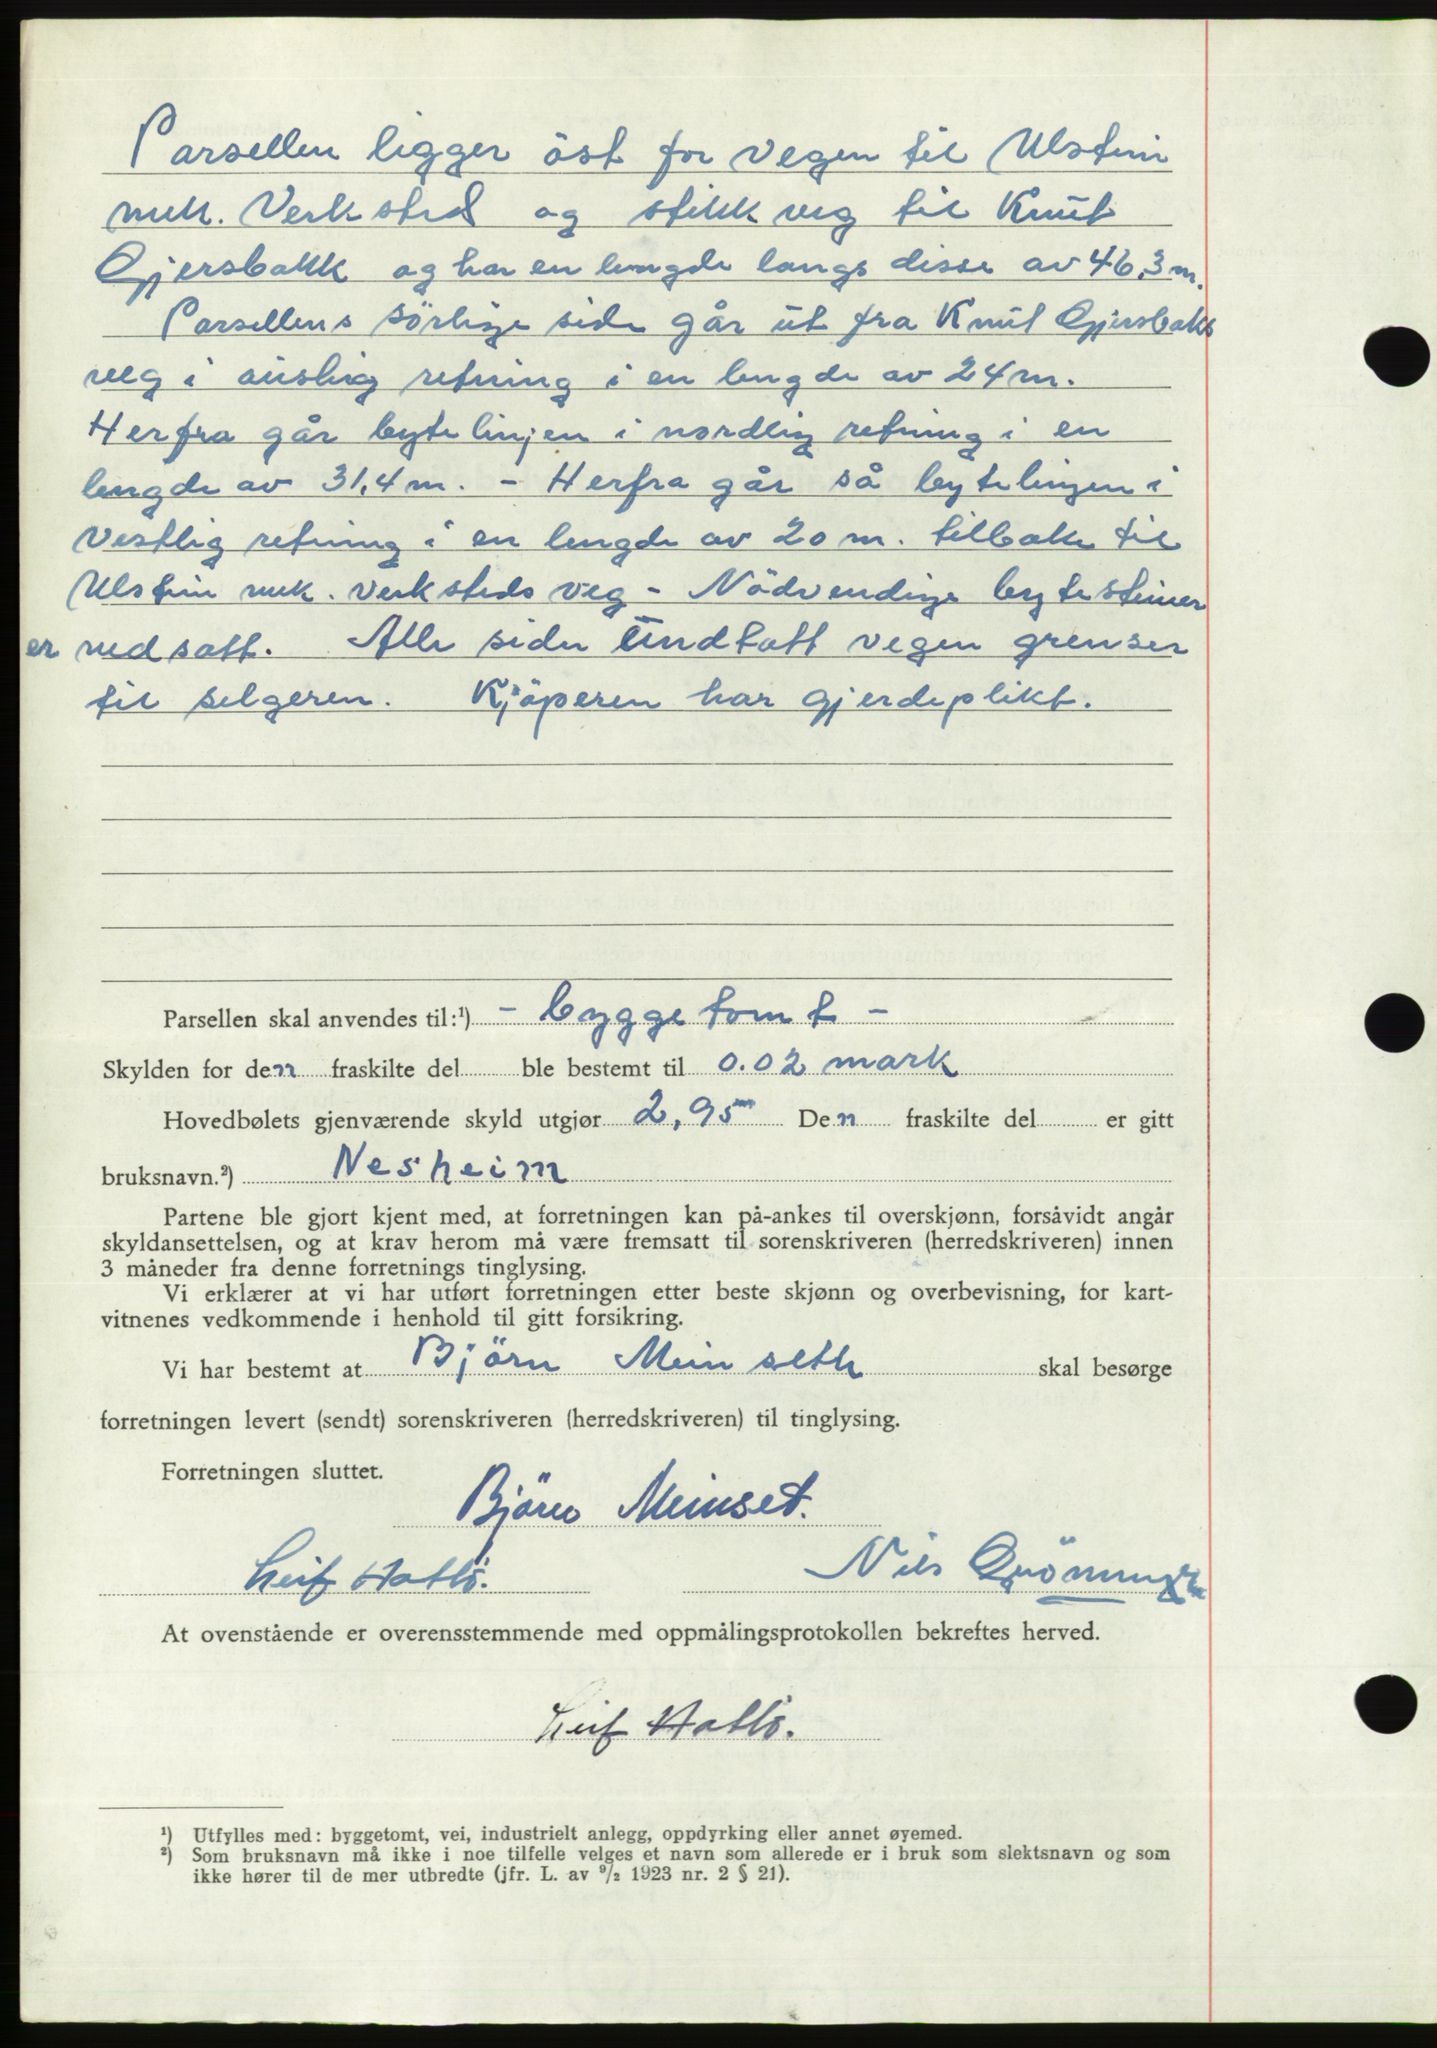 Parsellen ligger öst for vegen til Ulstein
mek. Verksted og stikkveg til Knut
Gjersbakk og har en lengde langs disse av 46,3 m.
Parsellens sörlige side går ut fra Knut Gjersbakks
veg i austlig retning i en lengde av 24 m.
Herfra går bytelinjen i nordlig retning i en
lengde av 31,4 m. - Herfra går så bytelinjen i
vestlig retning i en lengde av 20 m. tilbake til
Ulstein mek. verksteds veg - Nödvendige bytesteiner
er nedsatt. Alle sider undtatt vegen grenser
til selgeren. Kjöperen har gjerdeplikt.
Parsellen skal anvendes til:¹) - byggetomt -
Skylden for den fraskilte del ble bestemt til 0.02 mark
Hovedbølets gjenværende skyld utgjør 2,95 Den fraskilte del er gitt
bruksnavn.²) Nesheim
Partene ble gjort kjent med, at forretningen kan på-ankes til overskjønn, forsåvidt angår
skyldansettelsen, og at krav herom må være fremsatt til sorenskriveren (herredskriveren) innen
3 måneder fra denne forretnings tinglysing.
Vi erklærer at vi har utført forretningen etter beste skjønn og overbevisning, for kart-
vitnenes vedkommende i henhold til gitt forsikring.
Vi har bestemt at Björn Meinseth skal besørge
forretningen levert (sendt) sorenskriveren (herredskriveren) til tinglysing.
Forretningen sluttet.
Björn Meinset.
Leif Hatlö. Nils
At ovenstående er overensstemmende med oppmålingsprotokollen bekreftes herved.
Leif Hatlö.
¹) Utfylles med: byggetomt, vei, industrielt anlegg, oppdyrking eller annet øyemed.
²) Som bruksnavn må ikke i noe tilfelle velges et navn som allerede er i bruk som slektsnavn og som
ikke hører til de mer utbredte (jfr. L. av ⁹/₂ 1923 nr. 2 § 21).